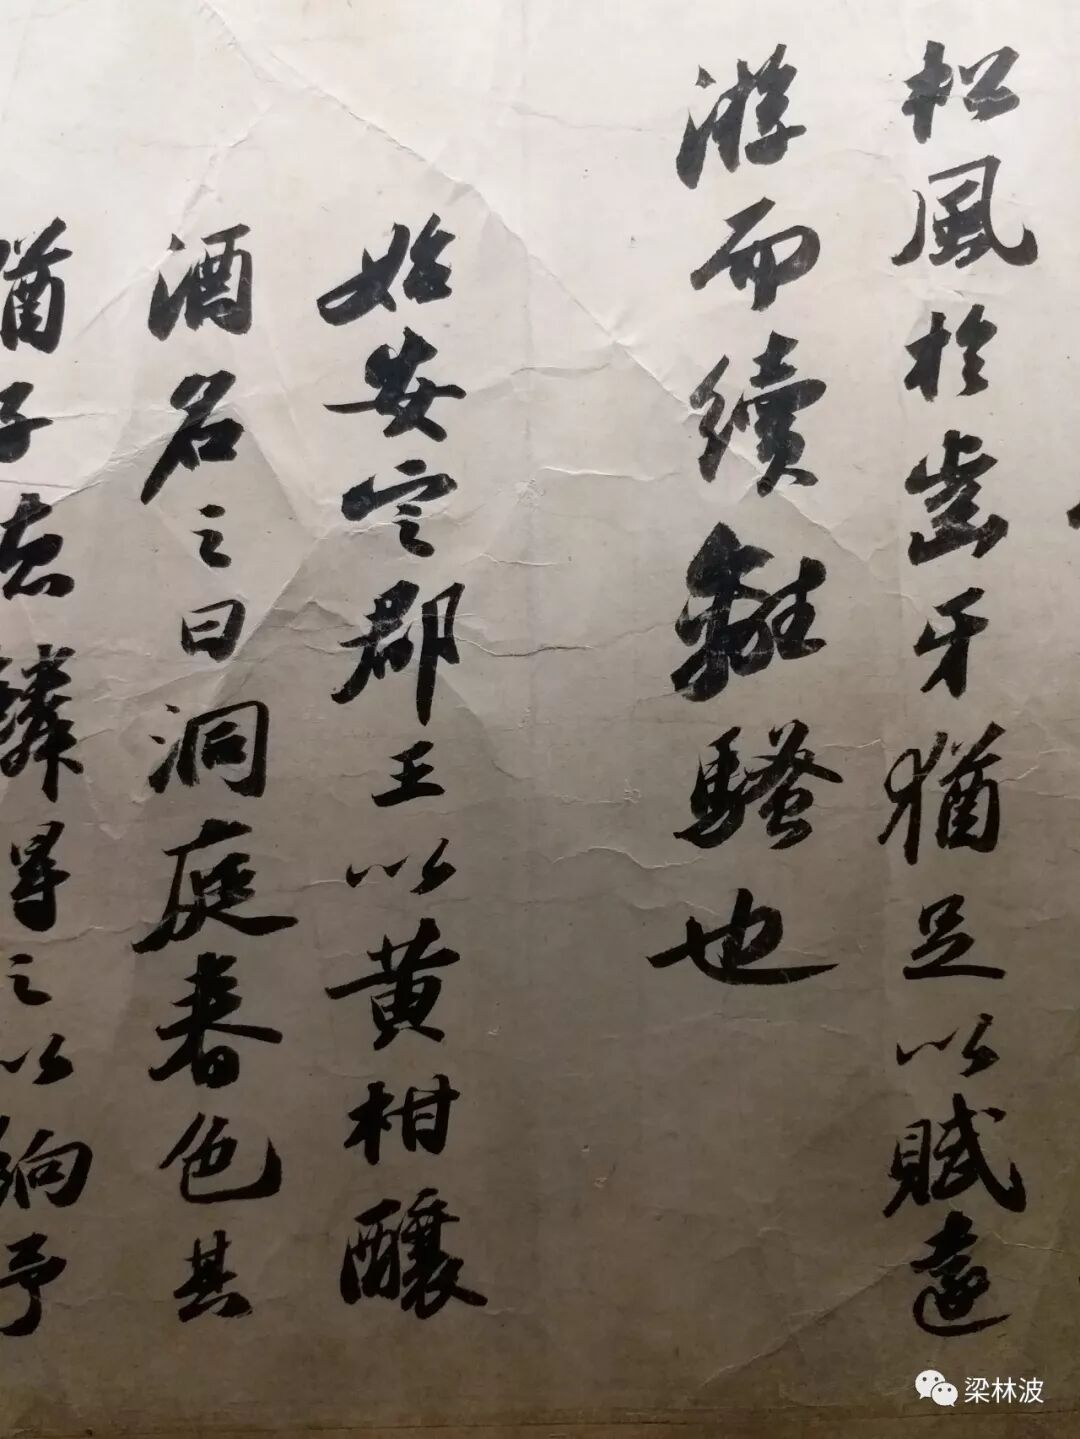 松風於齒牙猶足以賦遠
游而續離騷也
始安定郡王以黄柑釀
酒名之曰洞庭春色其
猶子德麟得之以餉予
梁林波